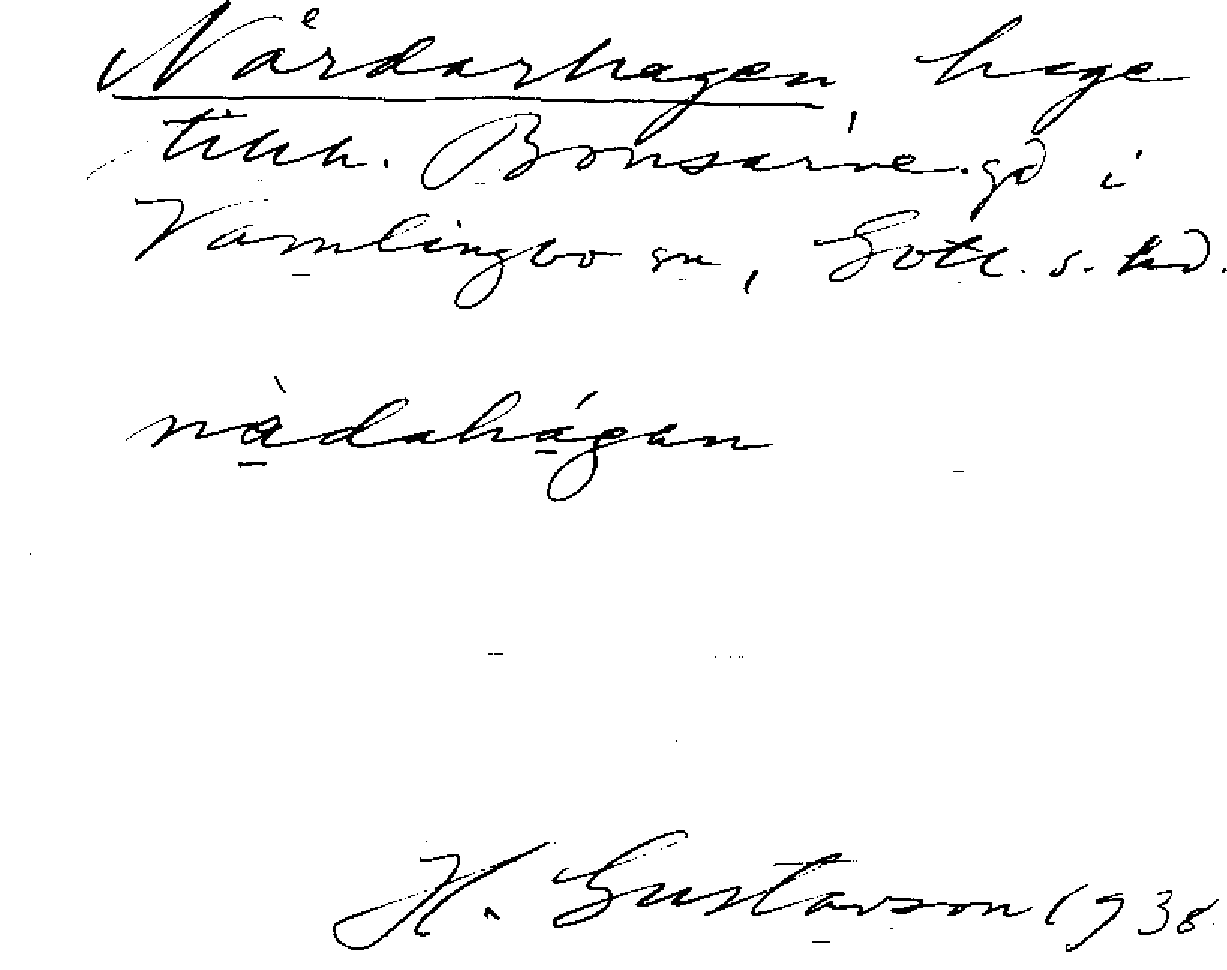 Nårdarhagen, hage
tihh. Bonsarve gd i
Vamlingbo sn, Gotl. s. hd.
nàdahágan
H. Gustavson 1938.